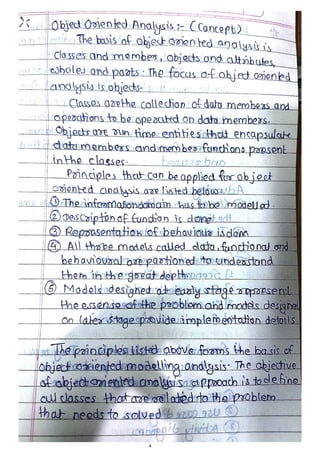 Object Oriented Analysis :- (Concept)
The basis of object oriented analysis is
classes and member, objects and attributes,
wholes and parts. The focus of object oriented
analysis is objects.
Classes are the collection of data members and
operations to be operated on data members.
Objects are run time entities that encapsulate
data members and member functions present
in the classes.
Principles that can be applied for object
oriented analysis are listed below
① The information domain has to be modelled
② Description of function is done
③ Representation of behaviour is done
④ All three models called data, functional and
behavioural are partioned to understand
them in the great depth.
⑤ Models designed at early stage represent
the essense of the problem and models designed
on later stage provide implementation details.
The principles listed above forms the basis of
object oriented modelling analysis. The objective
of object oriented analysis approach is to define
all classes that are related to the problem
that needs to solved